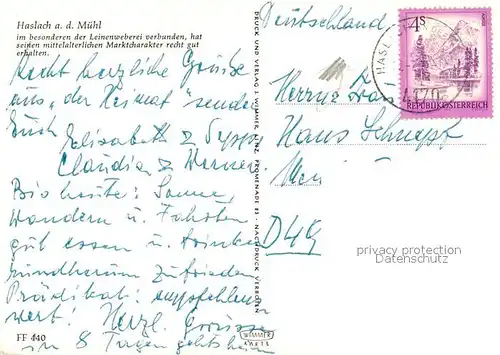 Haslach a. d. Mühl
im besonderen der Leinenweberei verbunden, hat
seinen mittelalterlichen Marktcharakter recht gut
erhalten.
Recht herzliche Grüsse
aus „der Heimat" senden
Euch Elisabeth & Sepp
Claudia & Werner
Bio heute: Sonne,
Wandern u. Fahrten
gut essen u. trinken
rundherum zufrieden
Prädikat: empfehlens
wert! Herzl. Grüsse
in 8 Tagen gehts heim
FF 440
DRUCK UND VERLAG J. WIMMER, LINZ, PROMENADE 23 - NACHDRUCK VERBOTEN
WIMMER
KARTE
Deutschland
Herrn & Frau
Hans Schnepf
D 49
4 S
REPUBLIK ÖSTERREICH
HASL
4170
privacy protection
Datenschutz